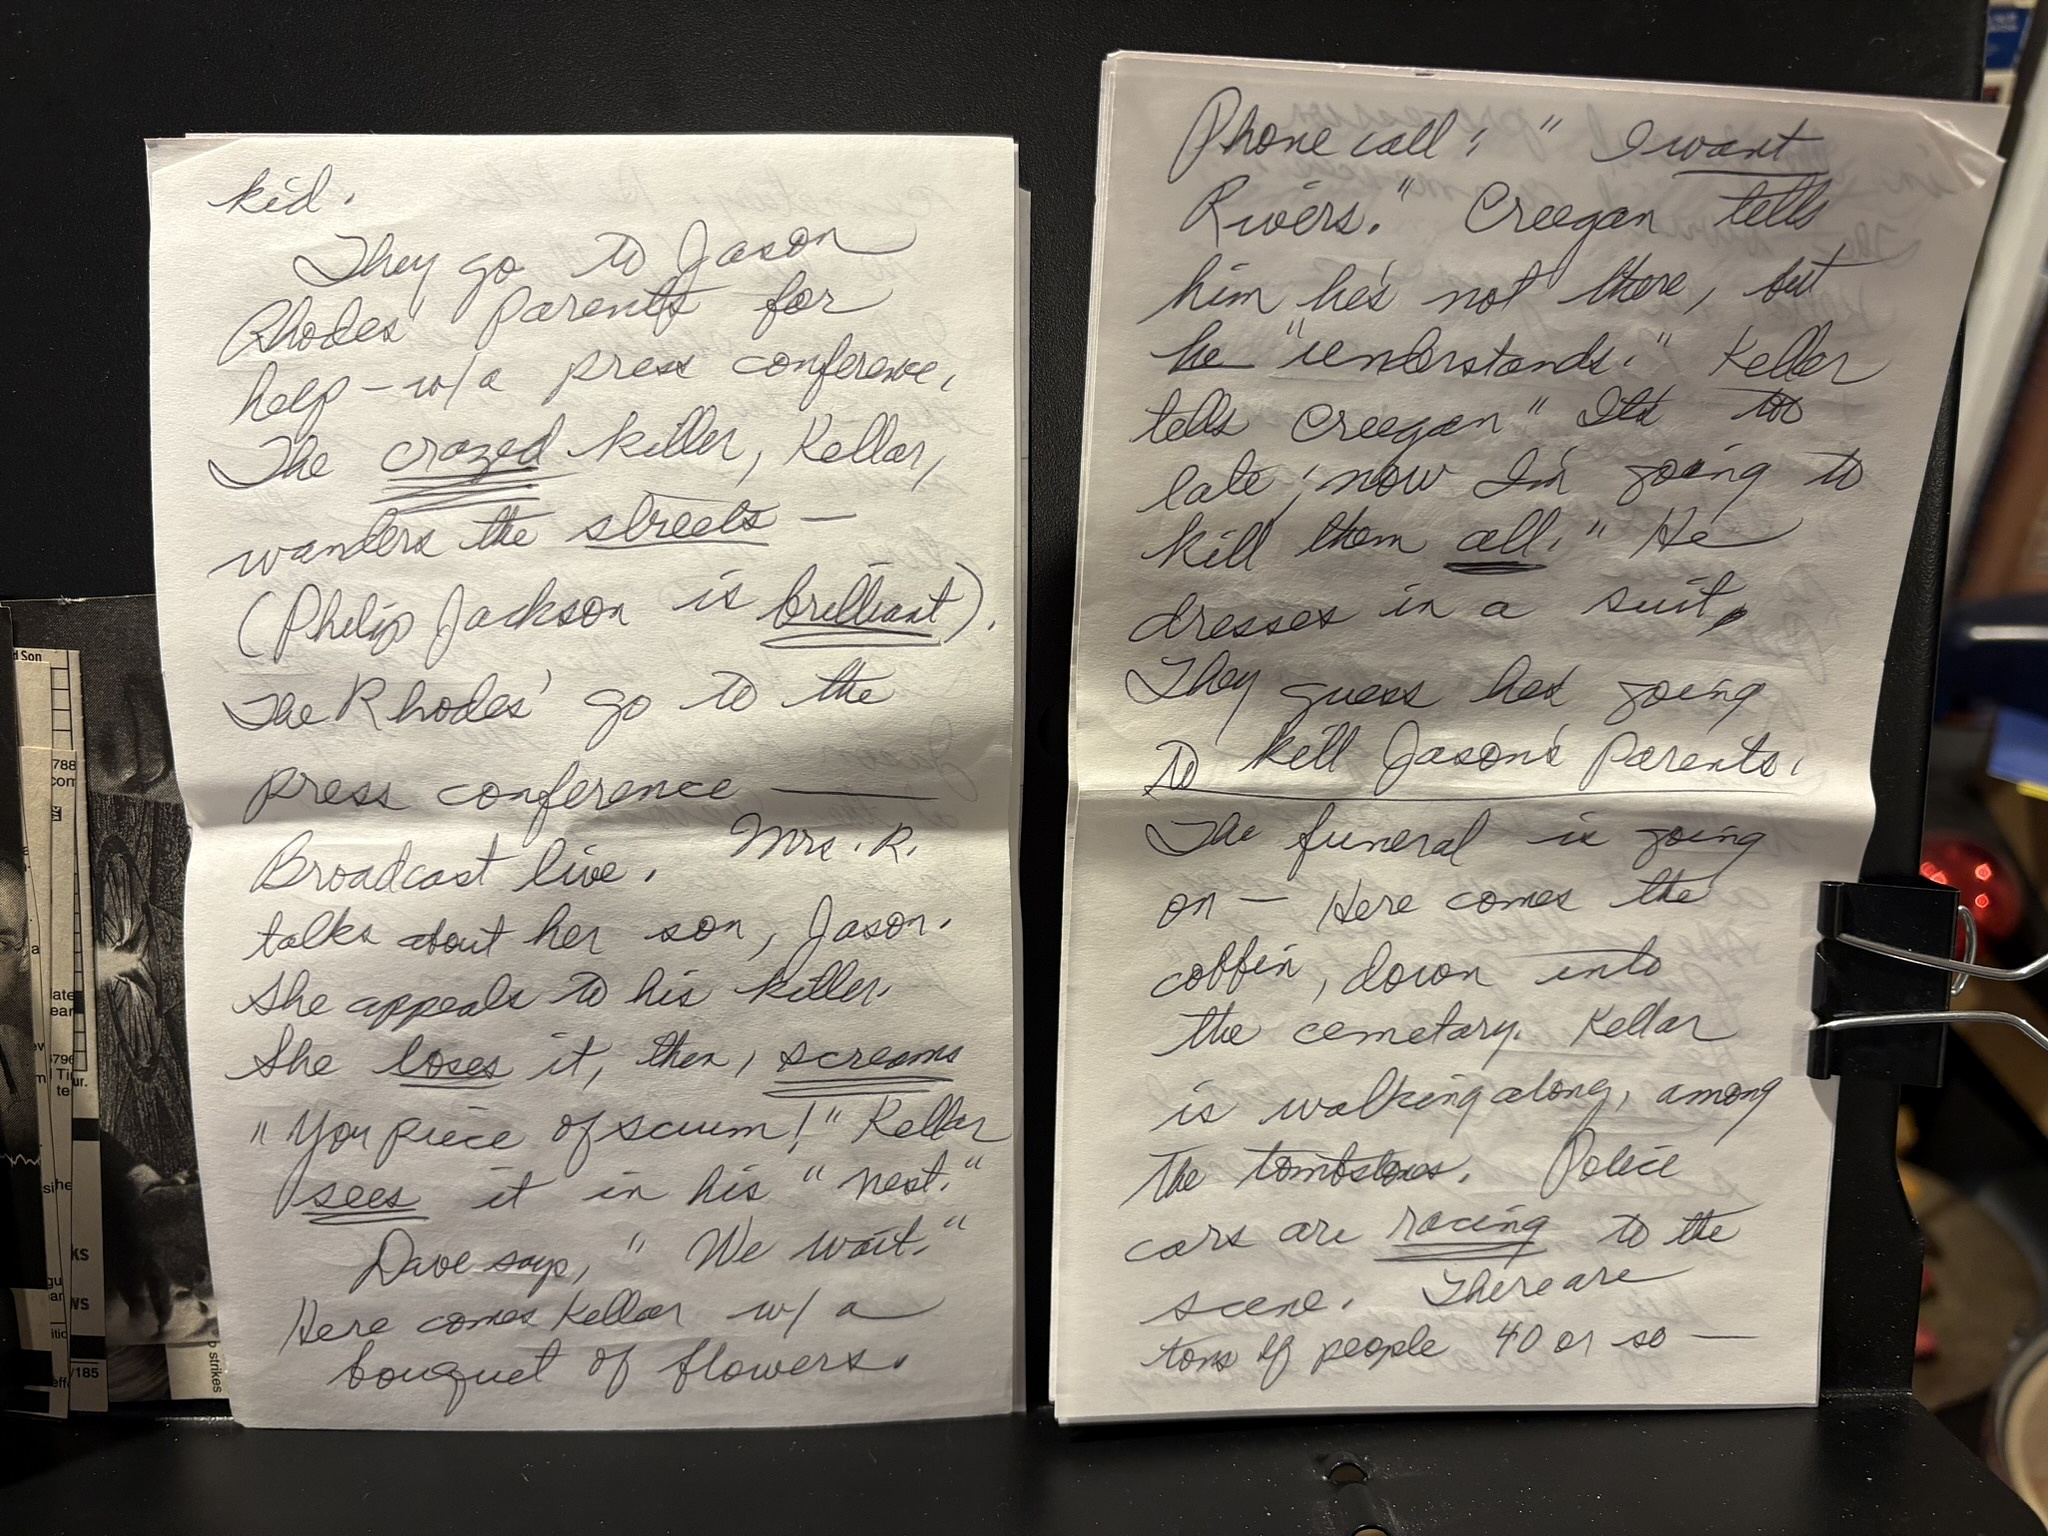 kid.
They go to Jason
Rhodes' Parents for
help - w/a press conference.
The crazed killer, Kellar,
wanders the streets —
(Philip Jackson is brilliant).
The Rhodes' go to the
press conference —
Broadcast live. Mrs. R.
talks about her son, Jason.
She appeals to his killer.
She loses it, then, screams
"You piece of scum!" Kellar
sees it in his "nest."
Dave says, "We wait."
Here comes Kellar w/ a
bouquet of flowers.
Phone call: "I want
Rivers." Creegan tells
him he's not there, but
he "understands." Kellar
tells Creegan "It's too
late; now I'm going to
kill them all." He
dresses in a suit.
They guess he's going
to kill Jason's parents.
The funeral is going
on — Here comes the
coffin, down into
the cemetary. Kellar
is walking along, among
the tombstones. Police
cars are racing to the
scene. There are
tons of people 40 or so —
d Son
788
com
ate
ear
796
Tir
ur.
te
he
KS
WS
/185
strikes